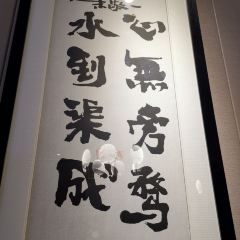 心無旁鶩
水到渠成